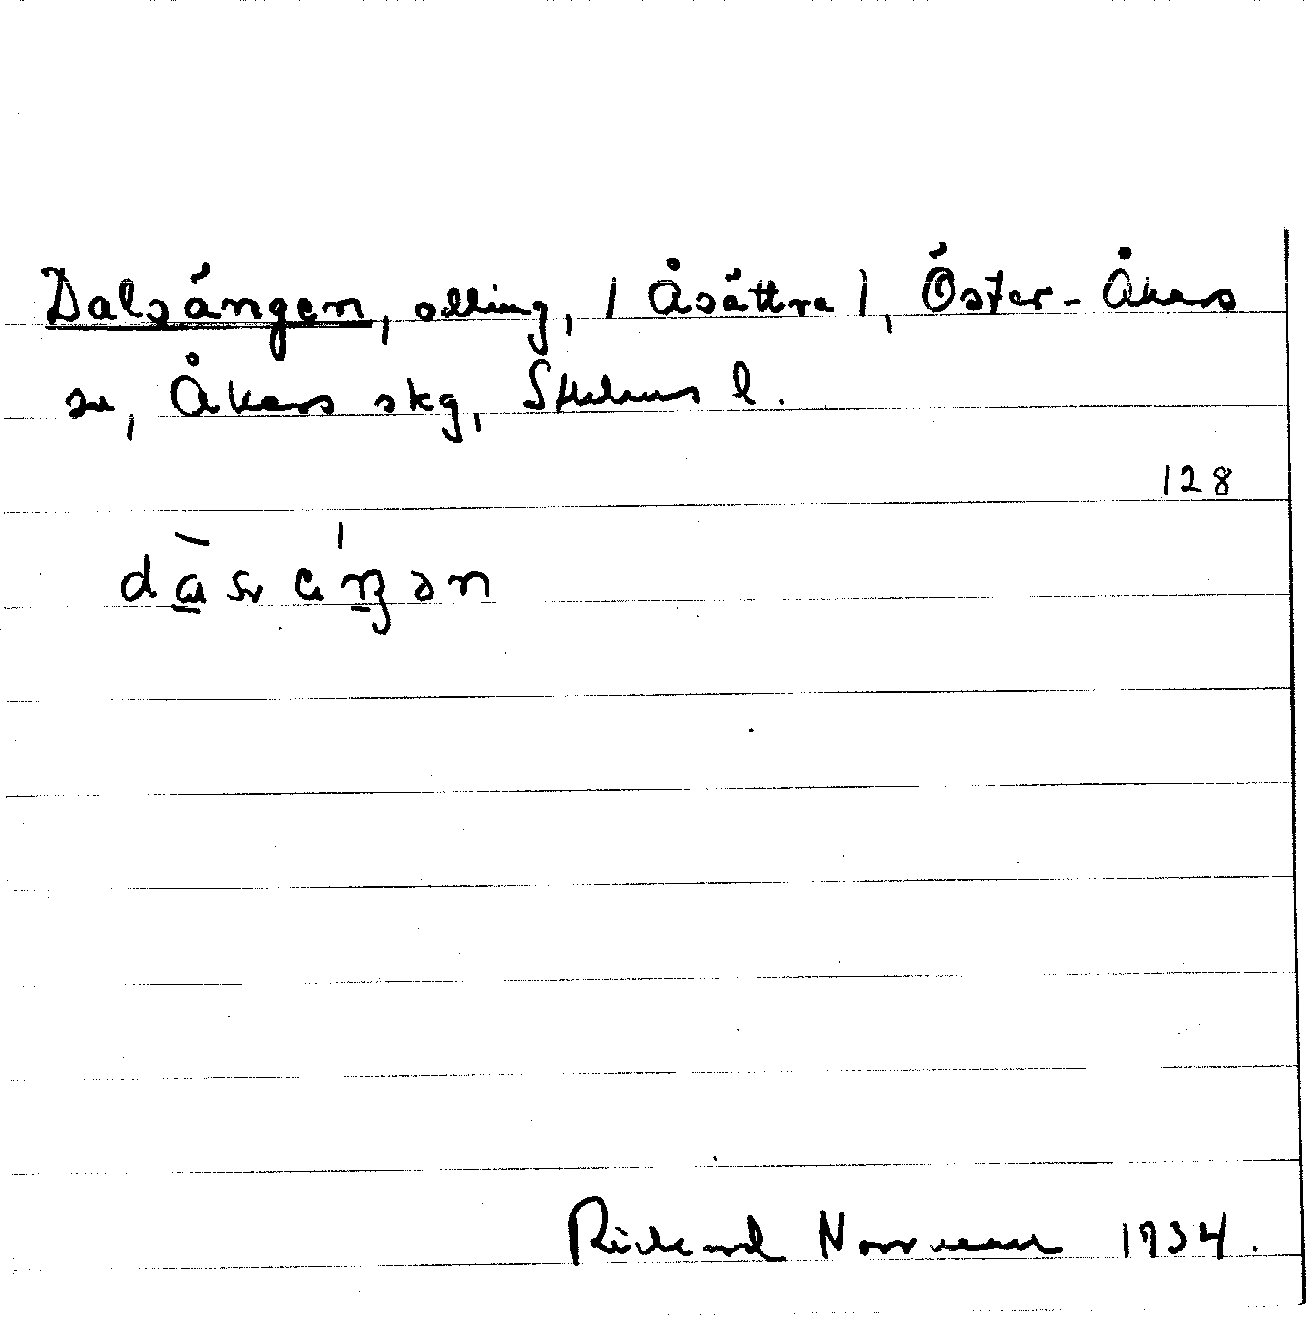 Dalsängen, odling, / Åsättra /, Öster-Åkers
sn, Åkers skg, Sthlms l.
128
Rickard Norrman 1934.